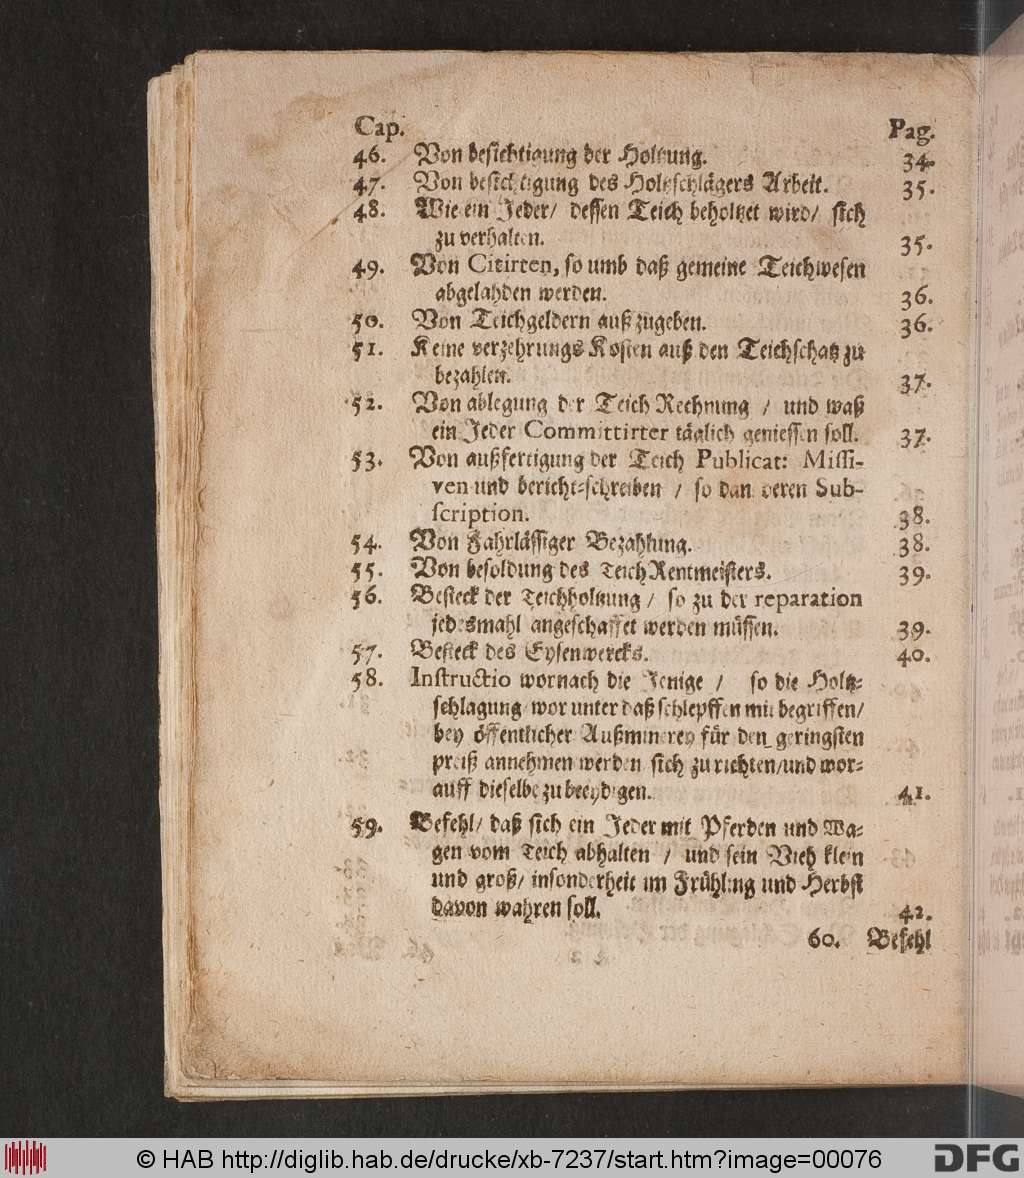 Cap. Pag.
46. Von besichtigung der Holtzung. 34.
47. Von besichtigung des Holtzschlägers Arbeit. 35.
48. Wie ein Jeder / dessen Teich beholtzet wird / sich
zu verhalten. 35.
49. Von Citirten, so umb daß gemeine Teichwesen
abgelahden werden. 36.
50. Von Teichgeldern auß zugeben. 36.
51. Keine verzehrungs Kosten auß den Teichschatz zu
bezahlen. 37.
52. Von ablegung der Teich Rechnung / und waß
ein Jeder Committirter täglich geniessen soll. 37.
53. Von außfertigung der Teich Publicat: Missi-
ven und bericht-schreiben / so dan deren Sub-
scription. 38.
54. Von Fahrlässiger Bezahlung. 38.
55. Von besoldung des Teich Rentmeisters. 39.
56. Besteck der Teichholtzung / so zu der reparation
jedesmahl angeschaffet werden müssen. 39.
57. Besteck des Eysenwercks. 40.
58. Instructio wornach die Jenige / so die Holtz-
schlagung worunter daß schlepffen mit begriffen /
bey öffentlicher Außminerey für den geringsten
preiß annehmen werden sich zu richten / und wor-
auff dieselbe zu beeydigen. 41.
59. Befehl / daß sich ein Jeder mit Pferden und Wa-
gen vom Teich abhalten / und sein Vieh klein
und groß / insonderheit im Frühling und Herbst
davon wahren soll. 42.
60. Befehl
© HAB http://diglib.hab.de/drucke/xb-7237/start.htm?image=00076
DFG